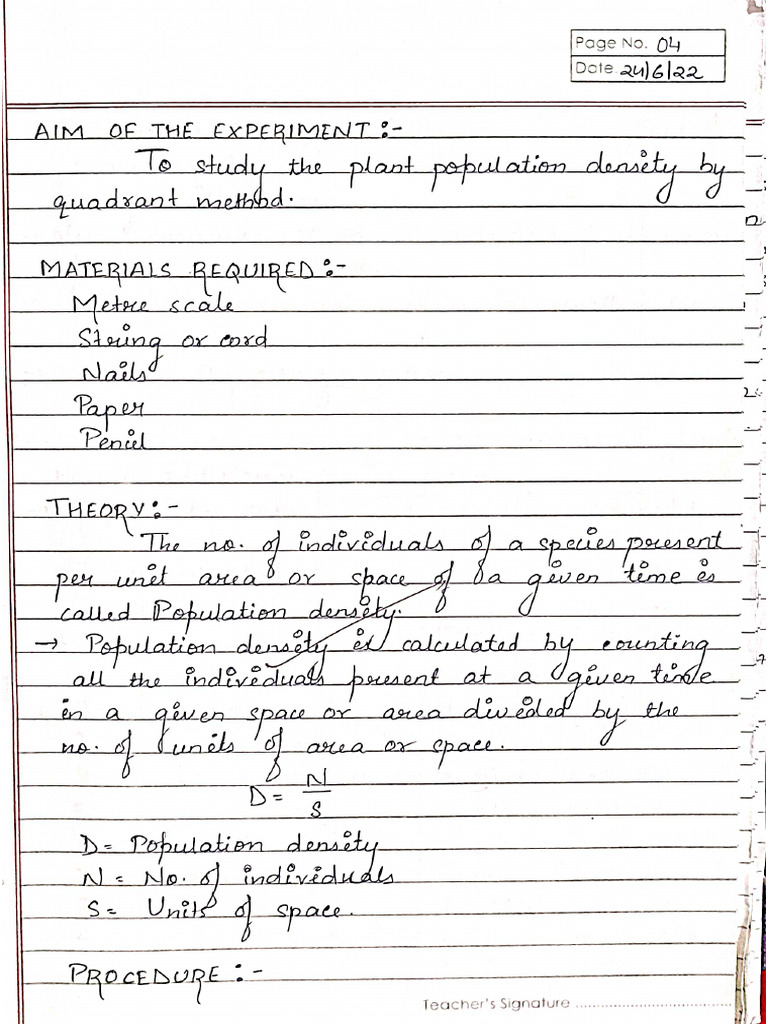 Page No. 04
Date 24/6/22
AIM OF THE EXPERIMENT :-
To study the plant population density by
quadrant method.
MATERIALS REQUIRED :-
Metre scale
String or cord
Nails
Paper
Pencil
THEORY :-
The no. of individuals of a species present
per unit area or space of a given time is
called Population density.
→ Population density is calculated by counting
all the individuals present at a given time
in a given space or area divided by the
no. of units of area or space.
D = N/S
D = Population density
N = No. of individuals
S = Units of space.
PROCEDURE :-
Teacher's Signature ..............................